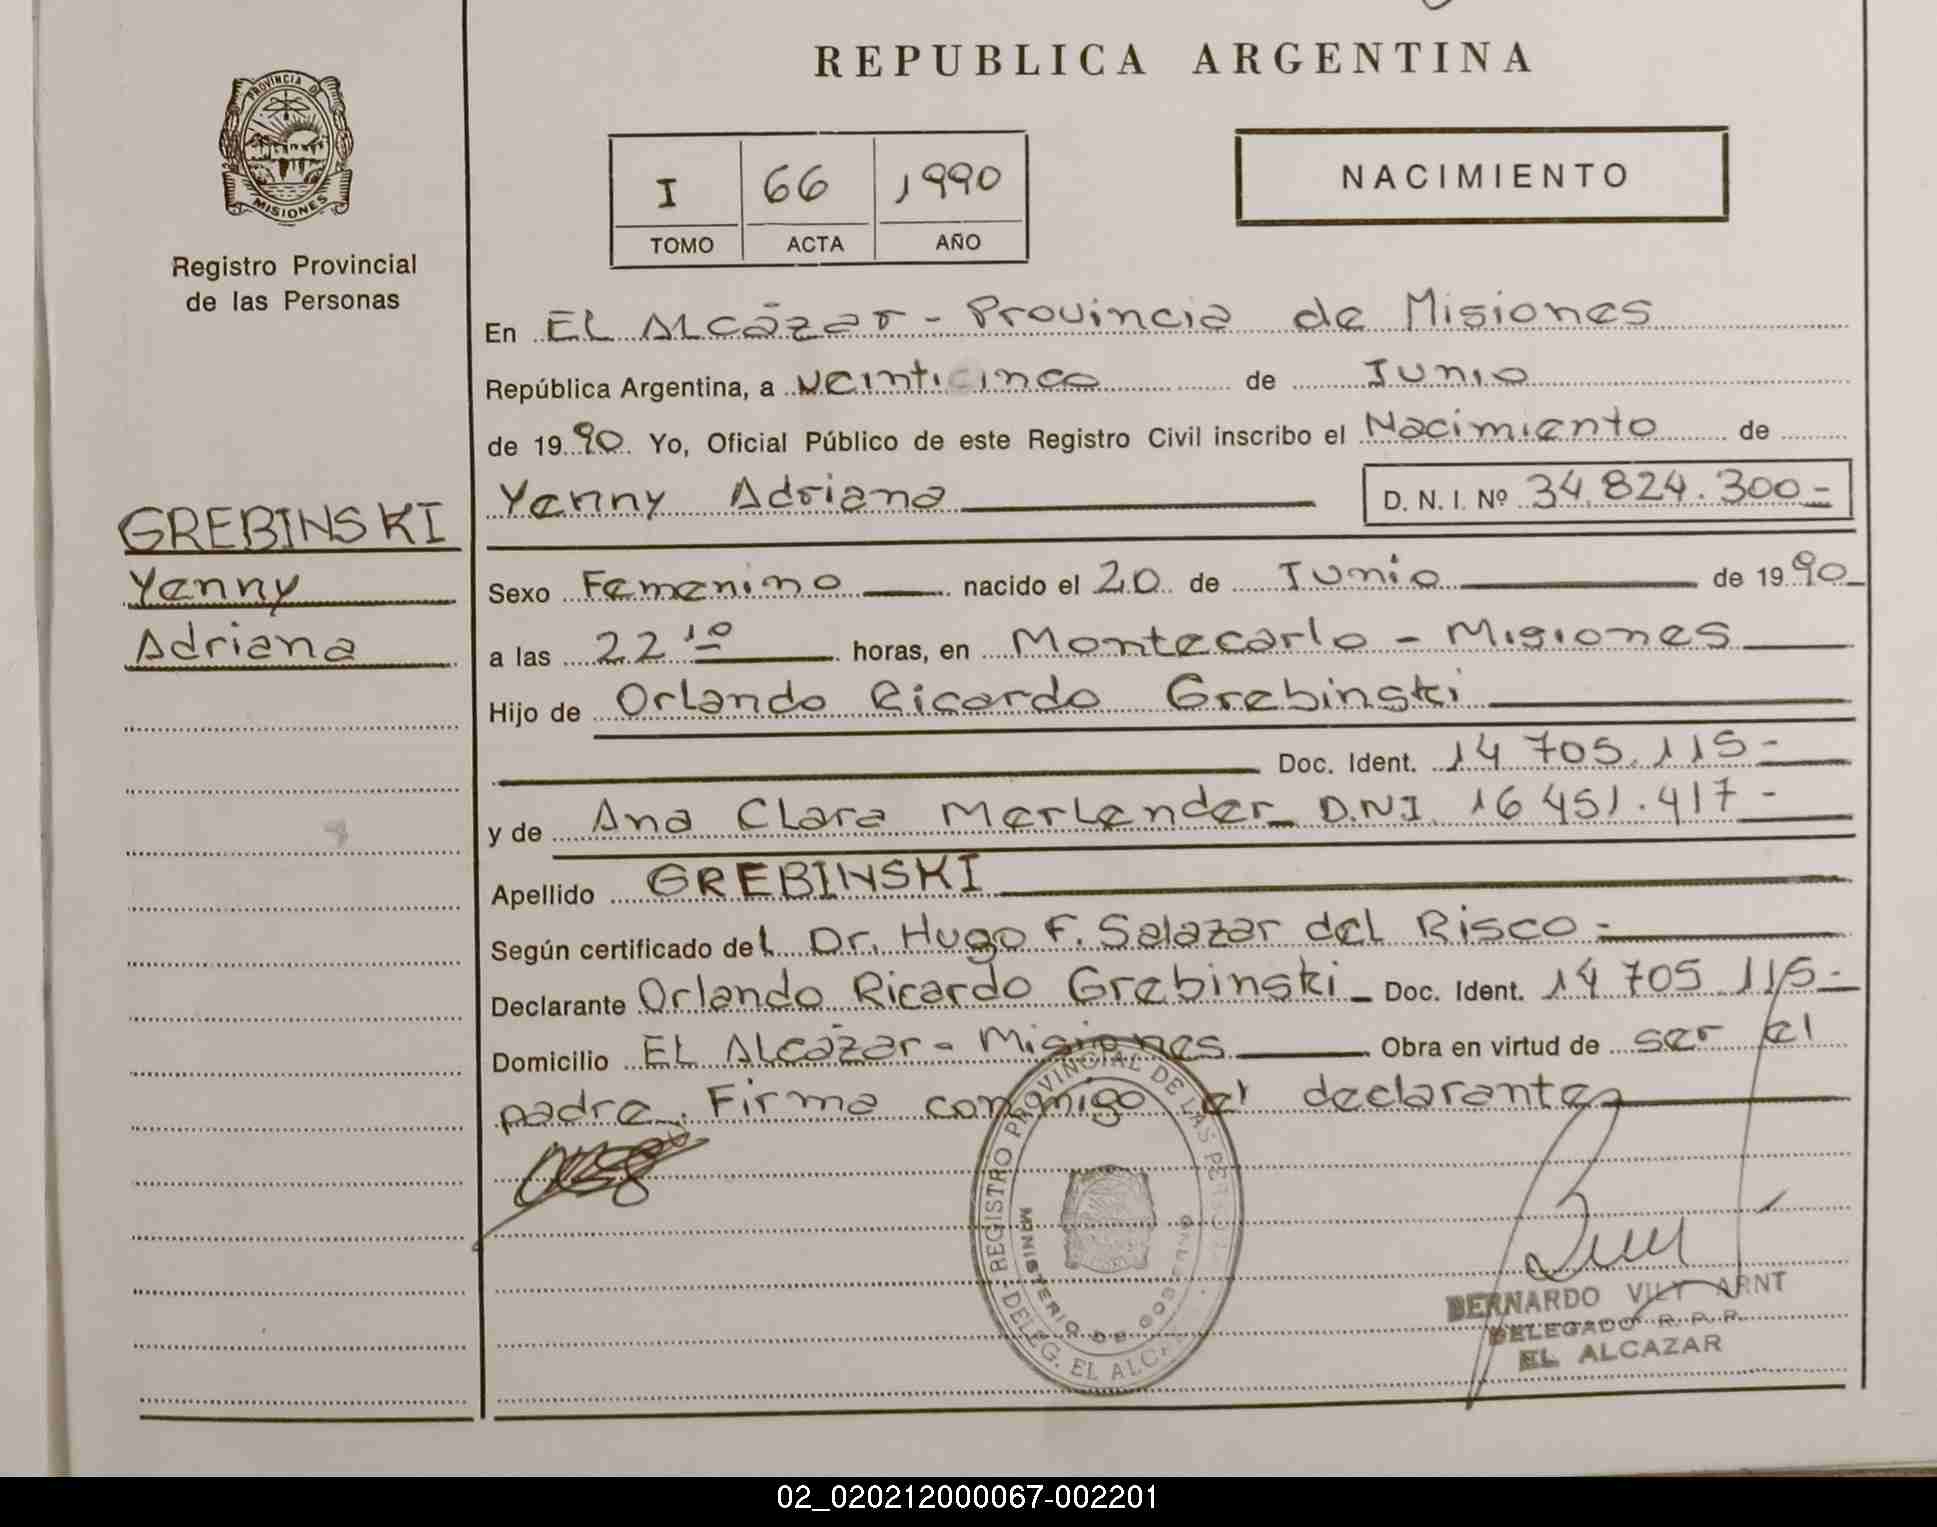 REPUBLICA ARGENTINA
PROVINCIA DE
MISIONES
Registro Provincial
de las Personas
I 66 1990
TOMO ACTA AÑO
NACIMIENTO
GREBINSKI
Yenny
Adriana
En EL ALcázar - Provincia de Misiones
República Argentina, a veinticinco de Junio
de 19 90 Yo, Oficial Público de este Registro Civil inscribo el Nacimiento de
Yenny Adriana D. N. I. Nº 34.824.300-
Sexo Femenino nacido el 20 de Junio de 19 90
a las 22 10 horas, en Montecarlo - Misiones
Hijo de Orlando Ricardo Grebinski
Doc. Ident. 14 705.115-
y de Ana Clara Merlender D.N.I. 16 451.417-
Apellido GREBINSKI
Según certificado del Dr. Hugo F. Salazar del Risco-
Declarante Orlando Ricardo Grebinski Doc. Ident. 14 705 115-
Domicilio EL ALcázar - Misiones Obra en virtud de ser el
padre. Firma conmigo el declarante
REGISTRO PROVINCIAL DE LAS
MINISTERIO DE GOBIERNO
DELEG. EL
BERNARDO VILY ARNT
DELEGADO R. P. P.
EL ALCAZAR
02_020212000067-002201